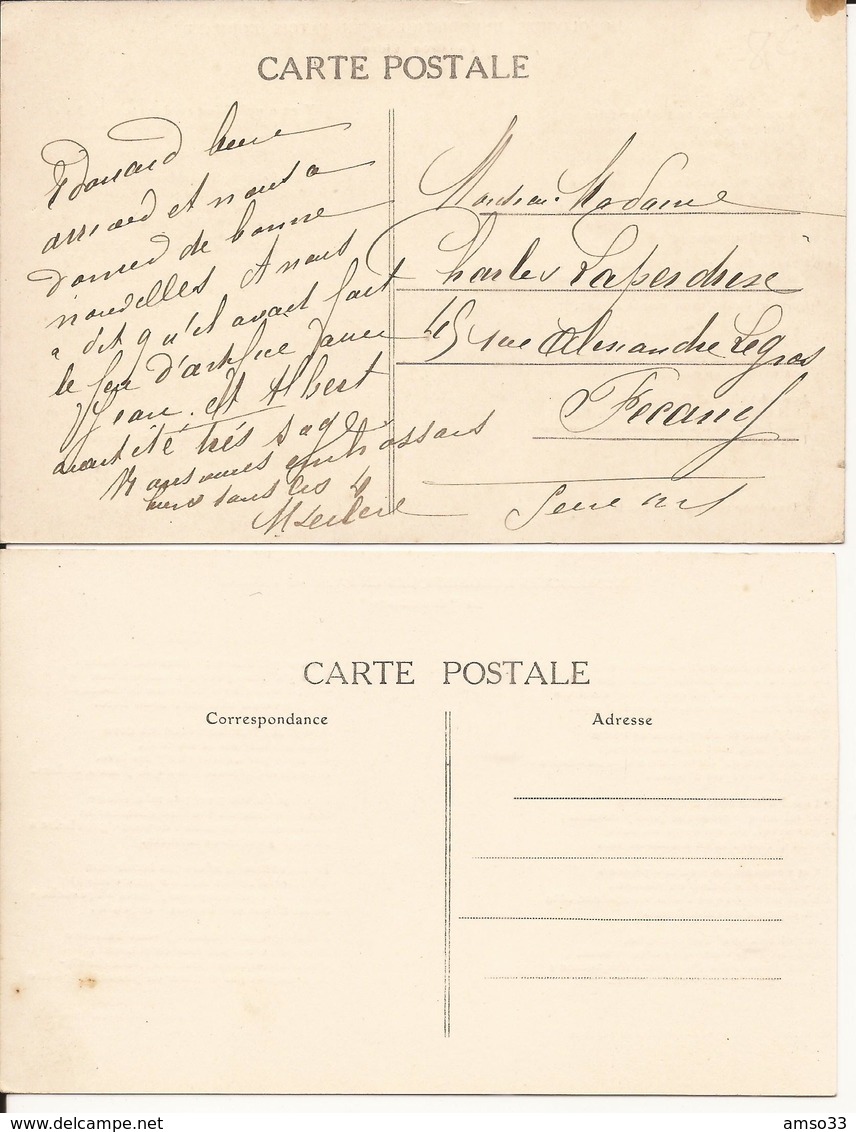 CARTE POSTALE
Edouard bien
arrived et nous a
donned de bonne
nouvelles et nous
a dit qu'il avait fait
le feu d'artifice
Jean et Albert
avait été très sage
embrassons
bien tous les 4
MLeclerc
Monsieur Madame
Charles Laperdrix
45 rue Alexandre Legros
Fecamp
Seine Inf
CARTE POSTALE
Correspondance
Adresse
amso33